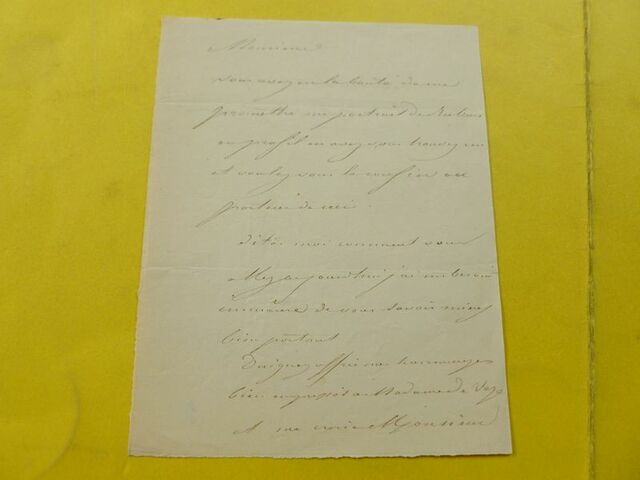 Monsieur
vous avez eu la bonté de me
promettre un portrait de Rubens
en profil en avez vous trouvez un
et voulez vous le confier au
porteur de ceci.
dites moi comment vous
allez aujourd'hui j'ai un besoin
de vous savoir
bien portant
Daignez offrir mes hommages
bien empressés a Madame de
et me croire Monsieur